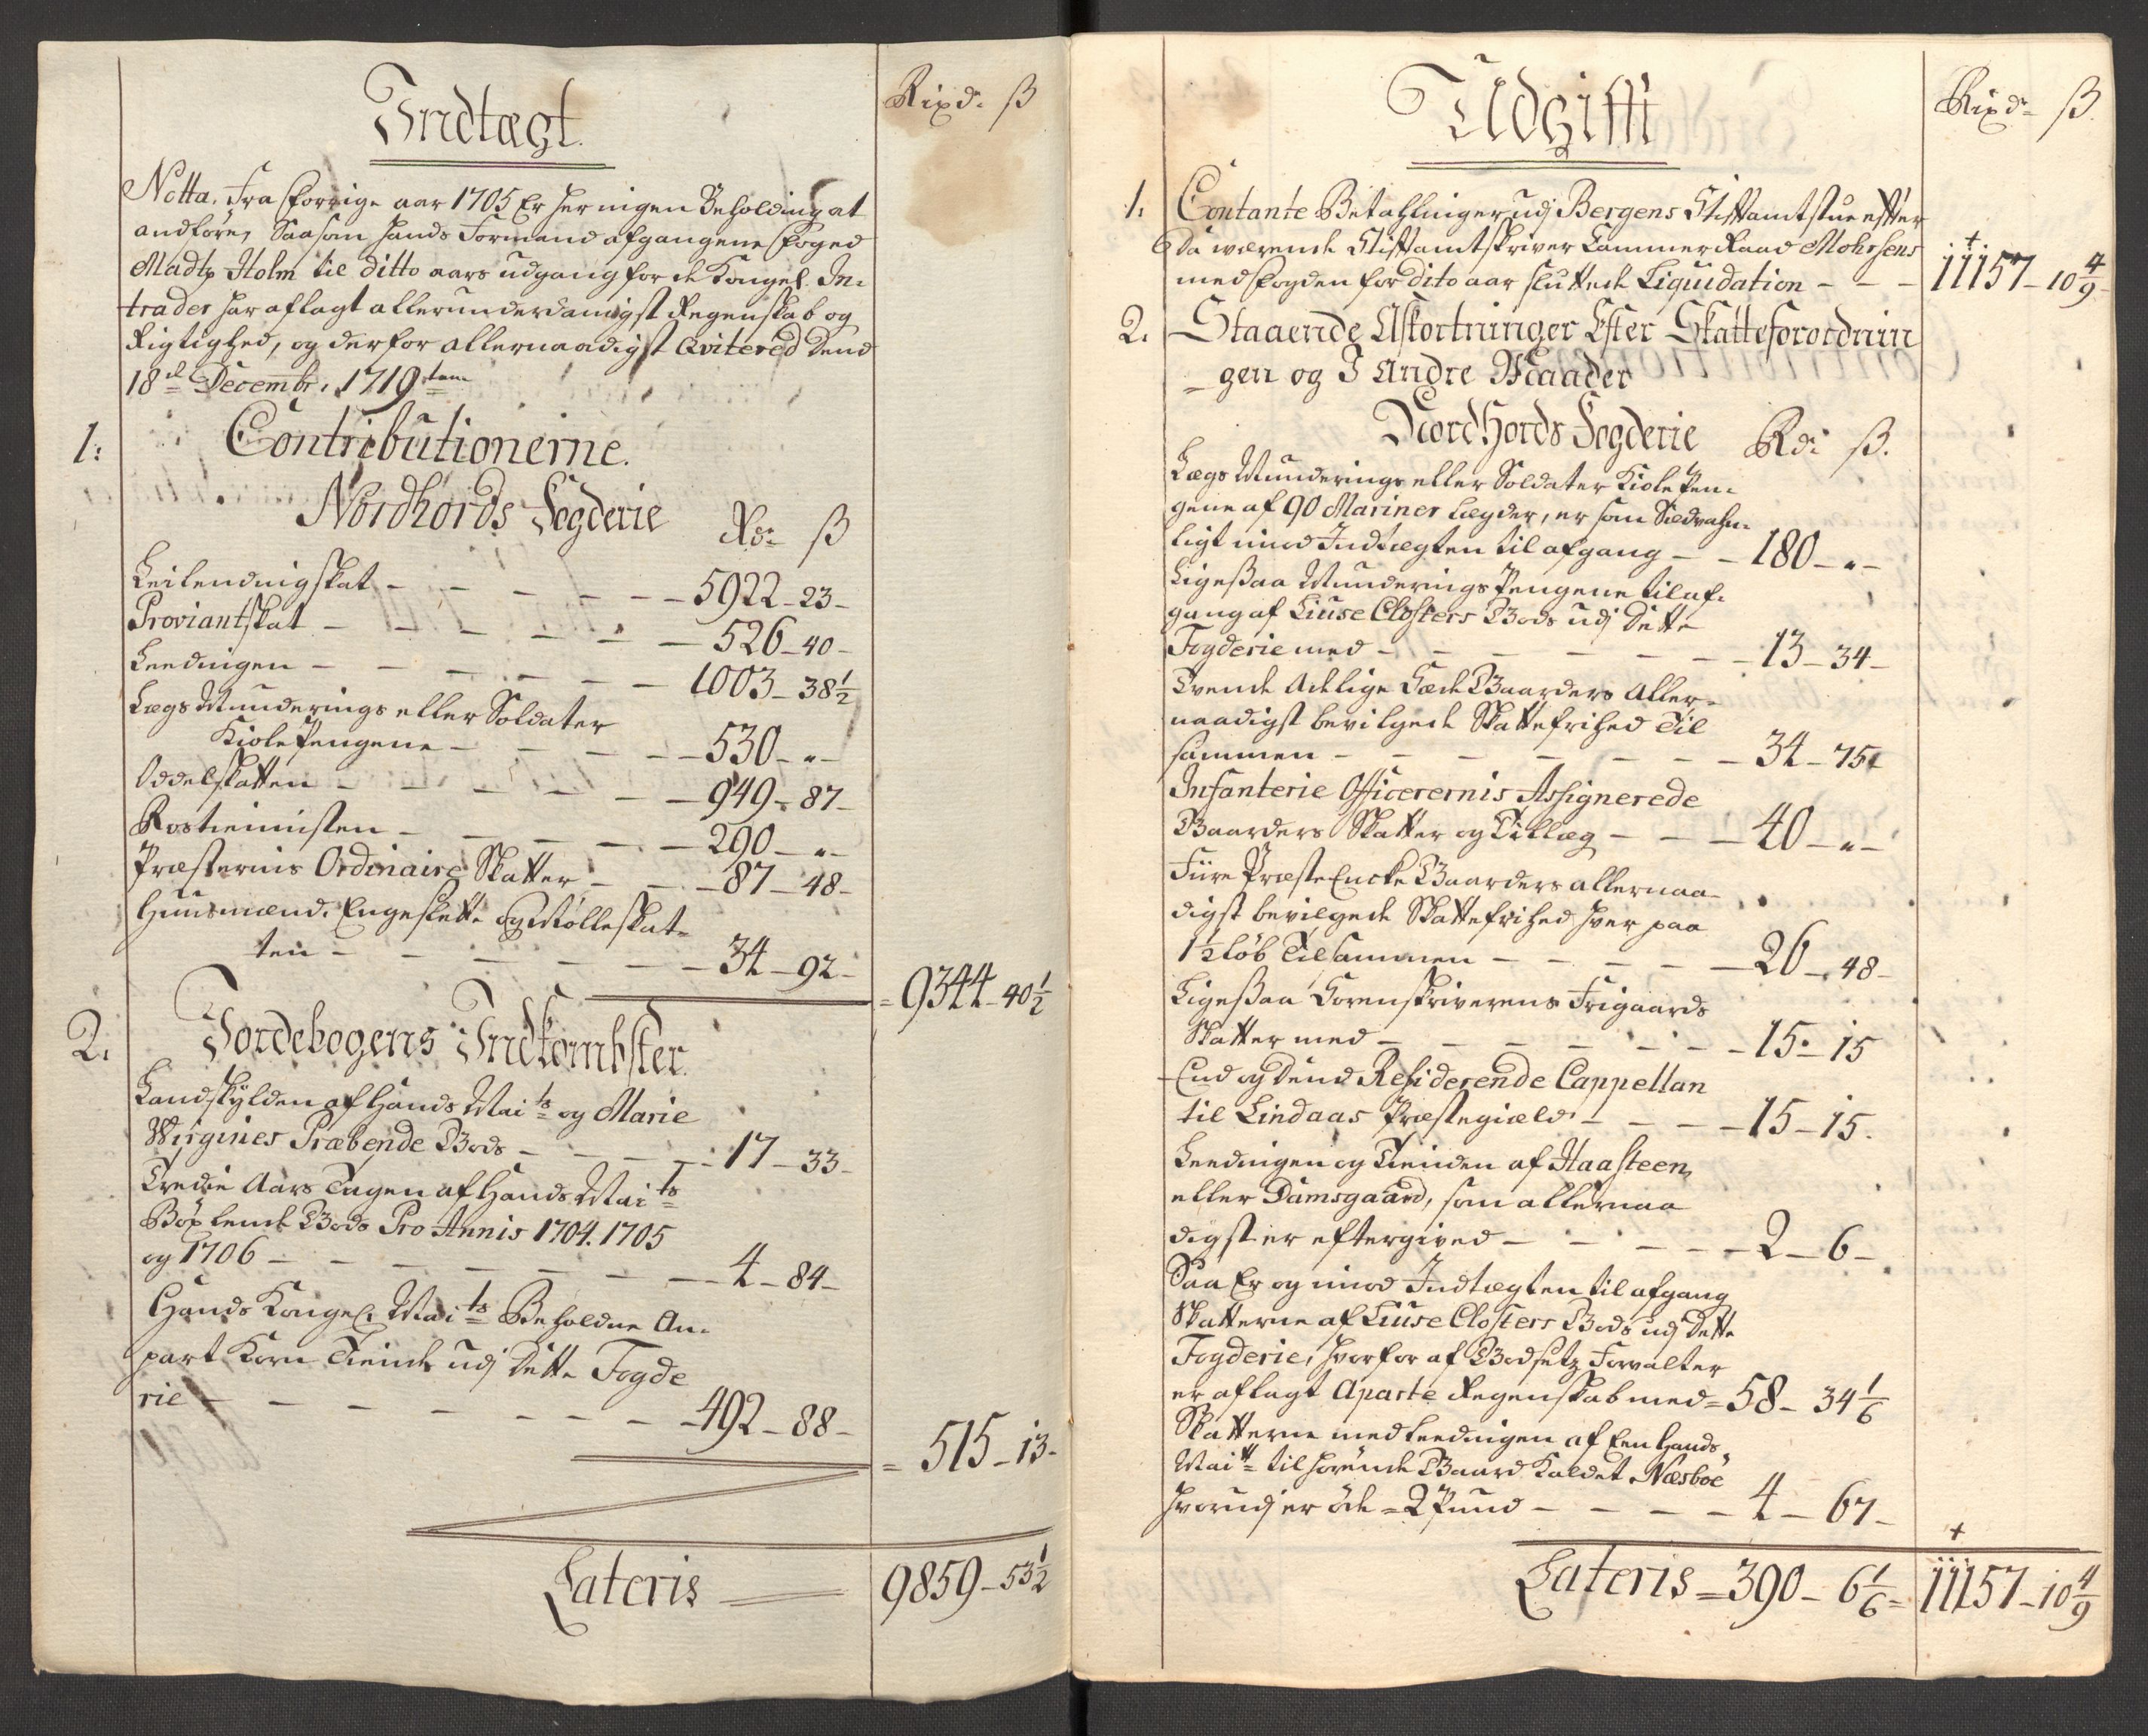 Indtægt.
Rixd. ß
Notta. Fra Forrige aar 1705 Er her ingen Beholding at
andföre, Saasom hands Formand afgangene Foged
Madtz Holm til ditto aars udgang for de Kongel. In-
trader har aflagt allerunderdanigst Regenskab og
Rigtighed, og derfor allernaadigst Qvitered Dend
18de Decembr. 1719ten
1: Contributionerne.
Nordhords Fogderie Rd: ß
Leilendingskat - - - - - 5922 - 23 -
Proviantskat - - - - - - 526 - 40 -
Leedingen - - - - - 1003 - 38½
Lægs Munderings eller Soldater
Kiole Pengene - - - - - 530 - " -
Oddelskatten - - - - - 949 - 87 -
Rostieenisten - - - - - 290 - " -
Præsternis Ordinaire Skatter - - - 87 - 48 -
Huusmænd. Engeslette og Mølleskat-
ten - - - - - - 34 - 92 -
= 9344 - 40½
2. Jordebogens Indkombster.
Landskylden af Hands Maits og Marie
Virgines Præbende Gods - - - - 17 - 33 -
Tredie Aars Tagen af Hands Maits
Böxlende Gods Pro Annis 1704. 1705
og 1706 - - - - - - - 4 - 84 -
Hands Kongel. Maits Beholdne An-
part Korn Tiende udj dette Fogde
rie - - - - - - - 492 - 88 -
= 515 - 13 -
Lateris = 9859 - 53½
Udgifft
Rixd: ß.
1. Contante Betahlinger udj Bergens Stiftamtstue efter
Da werende Stiftamtskriver Cammer Raad Mohrsens
med Fogden for dito aar sluttede Liquidation - - - 11157 - 10 4/9
2. Staaende Afkortninger Efter Skatteforordnin
gen og I Andre Maader
Nordhords Fogderie Rd: ß.
Lægs Munderings eller Soldater Kiole Pen-
gene af 90 Mariner Lægder, er som Sædvahn-
ligt imod Indtægten til afgang - - 180 - " -
Ligesaa Munderings Pengene til af-
gang af Liuse Closters Gods udj Dette
Fogderie med - - - - - - - 13 - 34 -
Tvende Adelige Sæde Gaarders Aller-
naadigst bevilgede Skattefrihed Til
sammen - - - - - - - 34 - 75
Infanterie Officerernis Assignerede
Gaarders Skatter og Tillæg - - - 40 - " -
Fiire Præste Encke Gaarders allernaa-
digst bevilgede Skattefrihed hver paa
1½ löb Tilsammen - - - - - 26 - 48 -
Ligesaa Sorenskriverens Frigaards
Skatter med - - - - - - - 15 - 15
End og Dend Residerende Cappellan
til Lindaas Præstegield - - - - 15 - 15.
Leedingen og Tienden af Haasteen
eller Damsgaard, som allernaa
digst er eftergived - - - - - 2 - 6 -
Saa Er og imod Indtægten til afgang
Skatterne af Liuse Closters Gods udj Dette
Fogderie, hvorfor af Godsetz Forvalter
er aflagt Aparte Regenskab med = 58 - 34 1/6
Skatterne med Leedingen af Een Hands
Maits tilhörende Gaard Kaldet Næsböe
hvorudj er öde = 2 Pund - - - - 4 - 67 -
Lateris = 390 - 6 1/6 = 11157 - 10 4/9